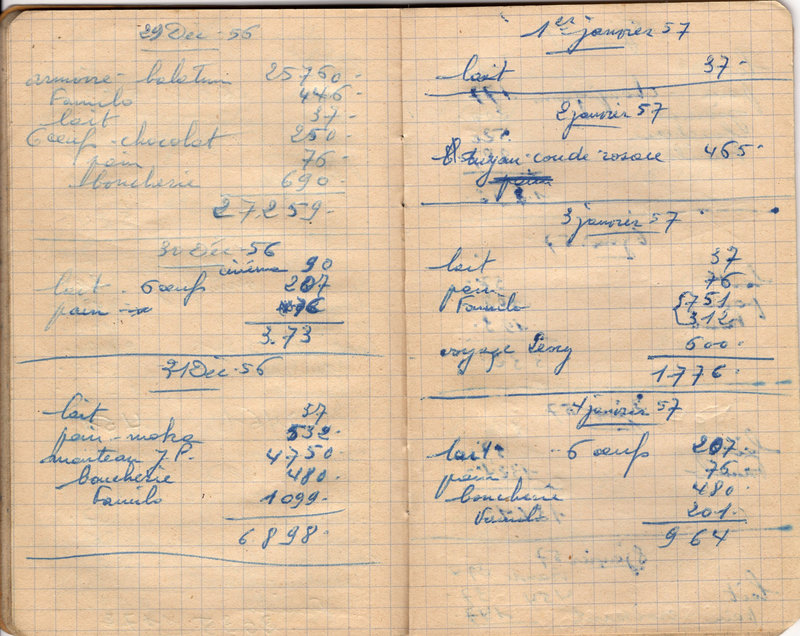 29 Déc - 56
armoire - balatum 25760 -
Familo 446 -
lait 37 -
6 œufs - chocolat 250 -
pain 76 -
boucherie 690 -
27259 -
30 Déc - 56
cinéma 90
lait - 6 œufs 207
pain 76
3.73
31 Déc - 56
lait 37
pain - moka 532 -
manteau J P. 4750 -
boucherie 480 -
Familo 1099 -
6898 -
1er janvier 57
lait 37 -
2 janvier 57
tuyau - coude - rosace 465 -
pain
3 janvier 57
lait 37
pain 76
Familo 751
312
voyage 600 -
1776 -
4 janvier 57
lait - 6 œufs 207
pain 76
boucherie 480 -
Familo 201 -
964